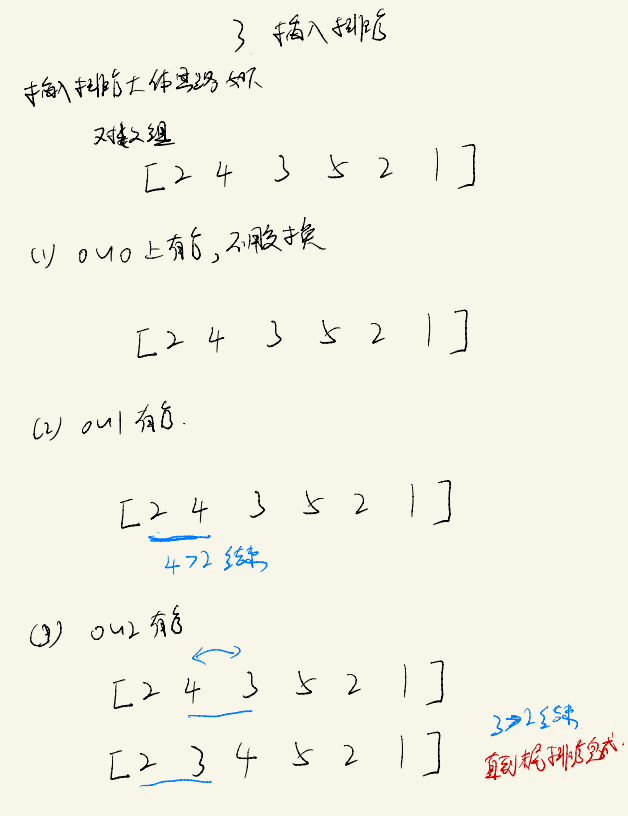 3 插入排序
插入排序大体思路如下
对数组
[2 4 3 5 2 1]
(1) 0~0上有序,不用交换
[2 4 3 5 2 1]
(2) 0~1有序.
[2 4 3 5 2 1]
4>2 结束
(3) 0~2有序
[2 4 3 5 2 1]
3>2结束
[2 3 4 5 2 1]
直到末尾排序完成.